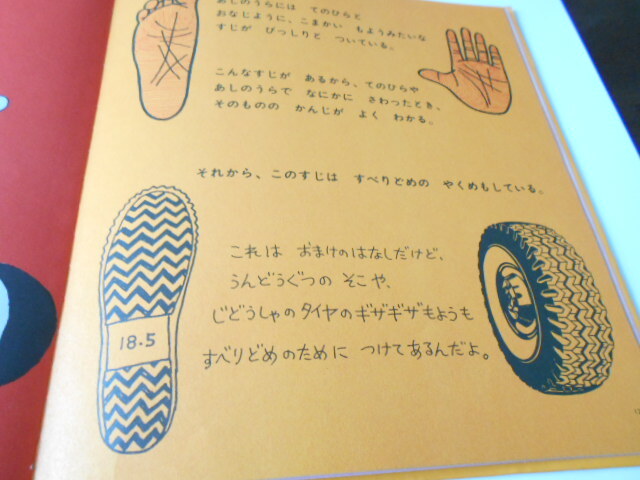 あしのうらには てのひらと
おなじように、こまかい もようみたいな
すじが びっしりと ついている。
こんなすじが あるから、てのひらや
あしのうらで なにかに さわったとき、
そのものの かんじが よく わかる。
それから、このすじは すべりどめの やくめもしている。
これは おまけのはなしだけど、
うんどうぐつの そこや、
じどうしゃのタイヤのギザギザもようも
すべりどめのために つけてあるんだよ。
18.5